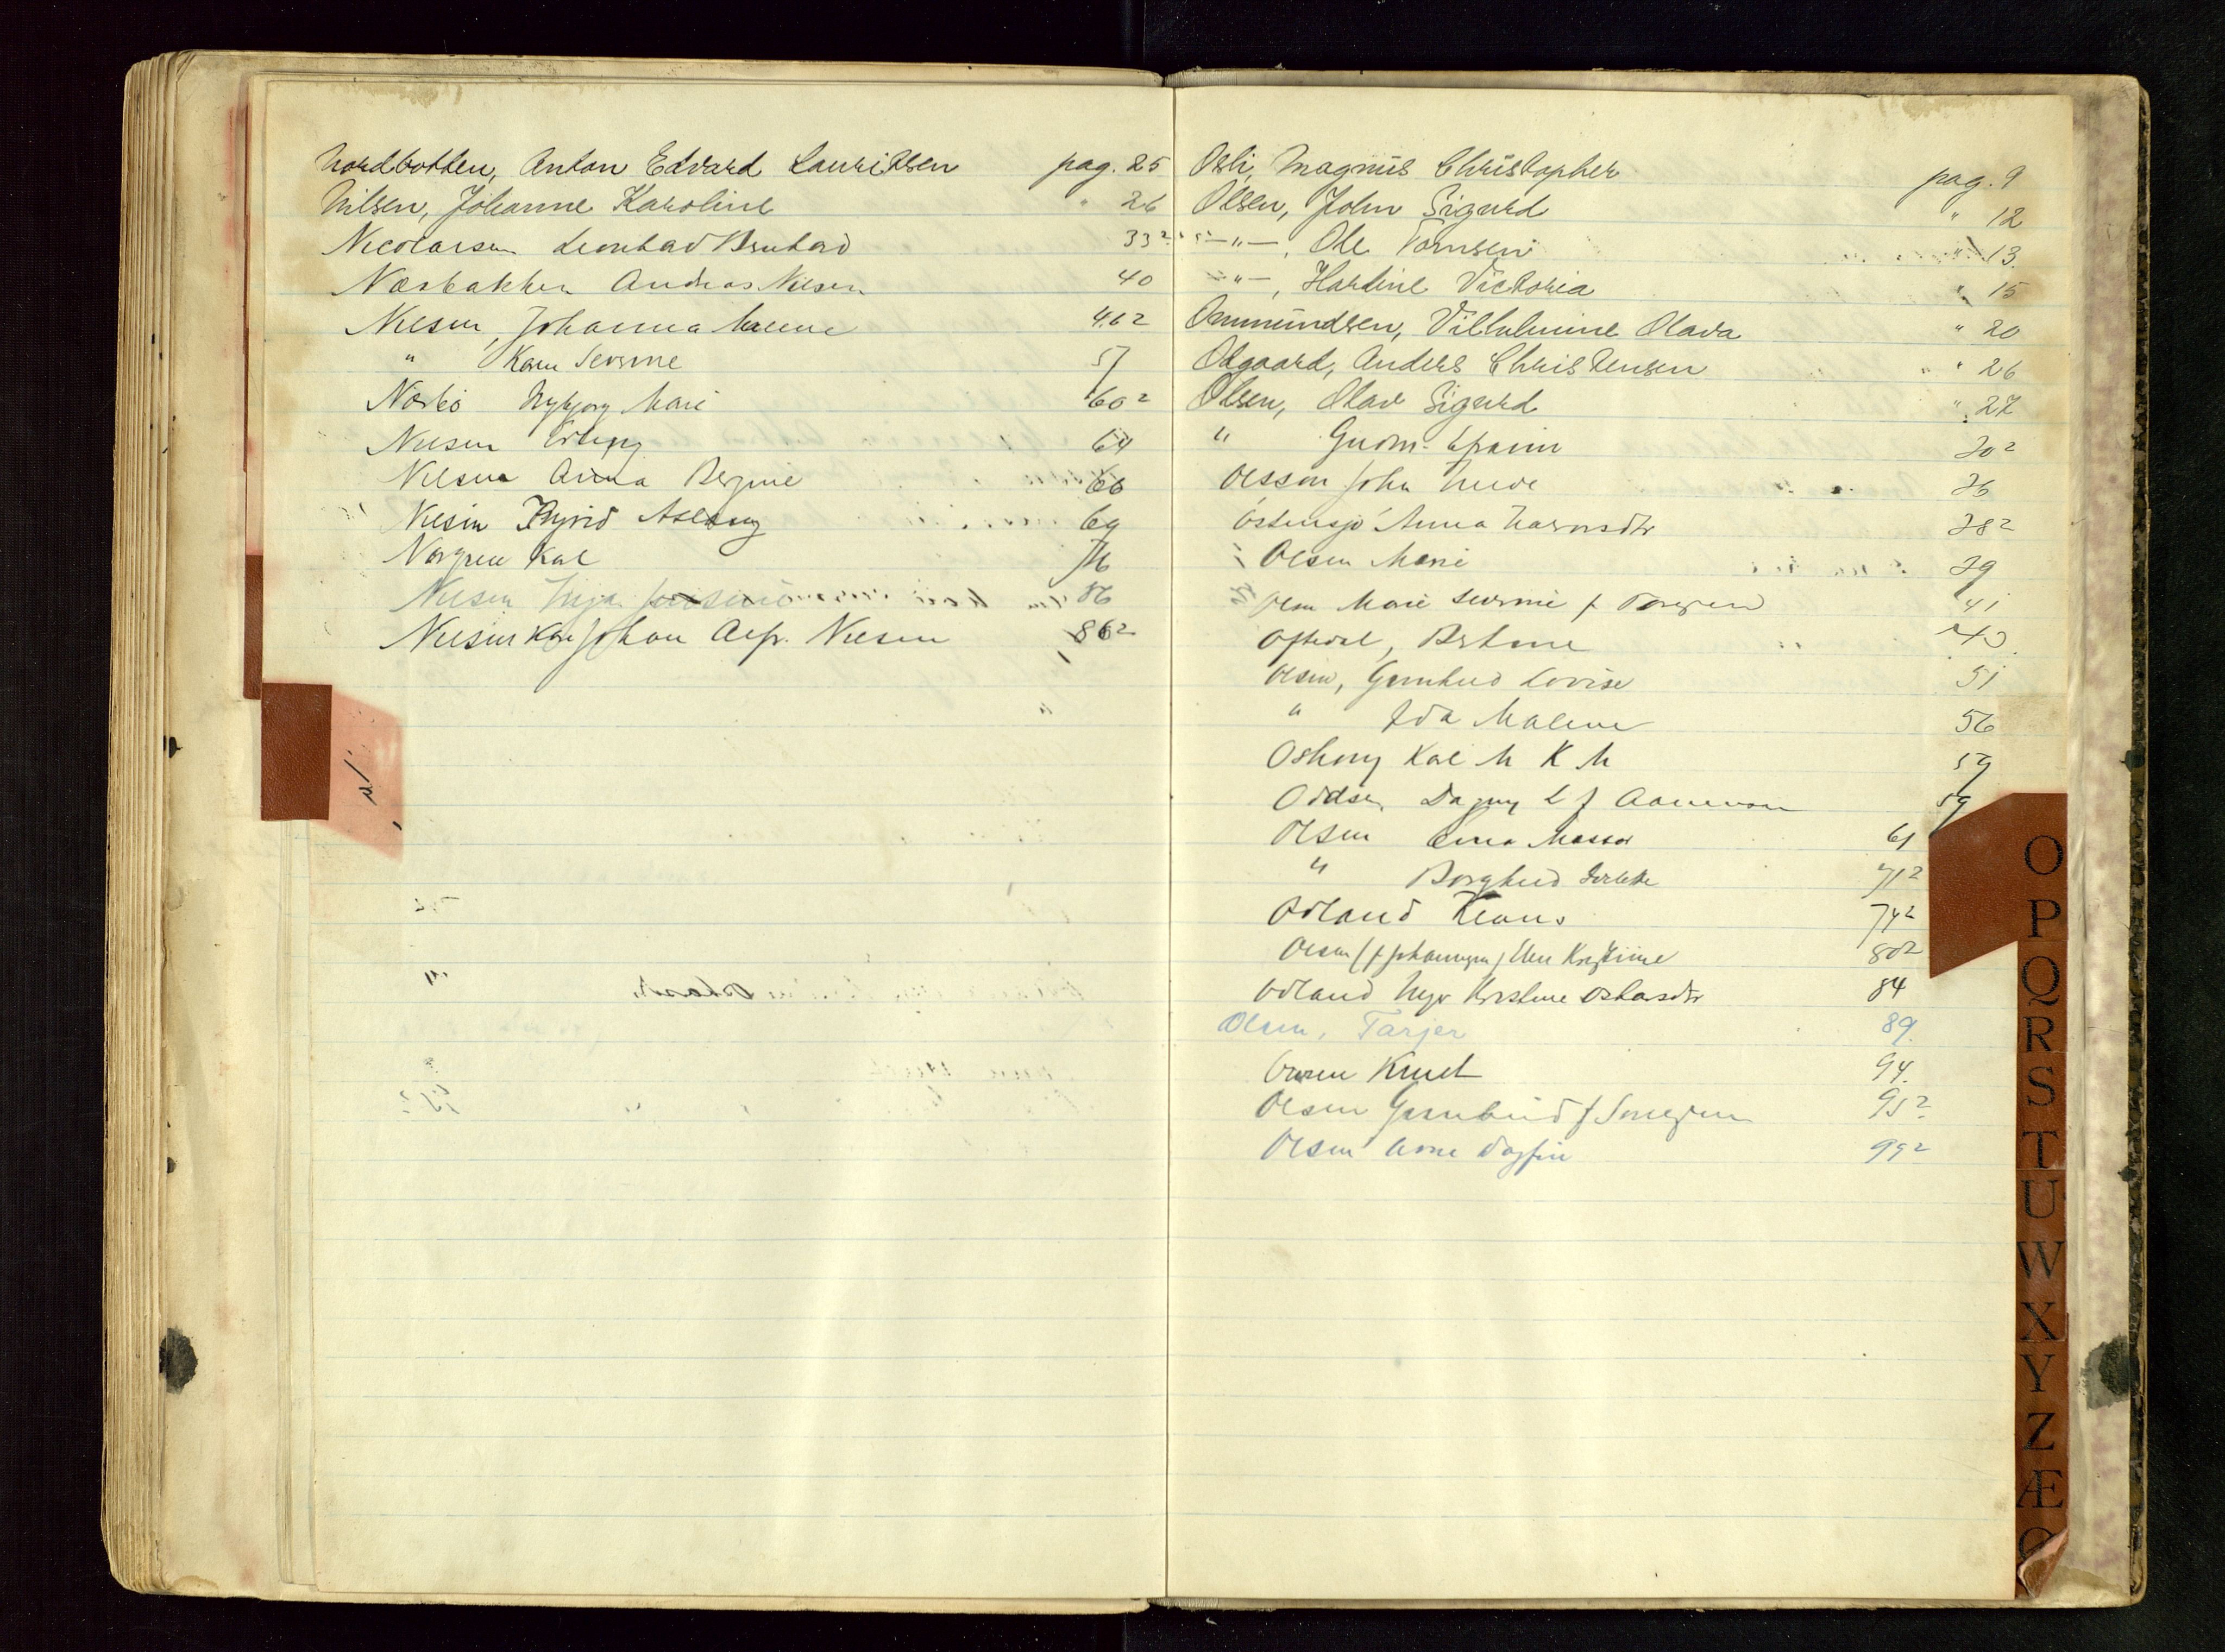 Nordbotten, Anton Edvard Lauritsen pag. 25
Nilsen, Johanne Karoline " 26
Nicolaisen Leonhard Bernhard 33²
Næsbakken Andreas Nilsen 40
Nilsen, Johanna Malene 46²
" Karen Severine 57
Næsbø Ingbjørg Marie 60²
Nilsen Erling 64
Nilsen Anna Bergine 66
Nilsen Ingrid Aslaug 69
Norgren Karl 76
Nilsen Inga 86
Nilsen Kåre Johan Alfr. Nilsen 86²
Osli, Magnus Christopher pag. 9
Olsen, John Sigurd " 12
—"—, Ole Tomsen " 13
—"—, Hartine Victoria " 15
Ommundsen, Vilhelmine Olava " 20
Odgaard, Anders Christensen " 26
Olsen, Olav Sigurd " 27
" Gudm. Efraim 30²
Olsson John 36
Østensjø Anna 38²
Olsen Marie 39
Olsen Marie Severine f. Torgersen 41
Oftedal, Bertine 43
Olsen, Gunhild Lovise 51
" Ida Malene 56
Oskong Karl M K M 59
Oddsen, Dagny L f 59
Olsen Erna 61
" Borghild 71²
Odland Klaus 74²
Olsen (f. Johannesen) Ellen Kristine 80²
Odland Inger Kirstine Oskarsdtr 84
Olsen, Tarjer 89.
Knut 94.
Olsen Gunhild f. 95²
Olsen Arne Dagfin 99²
O
P
Q
R
S
T
U
W
X
Y
Z
Æ